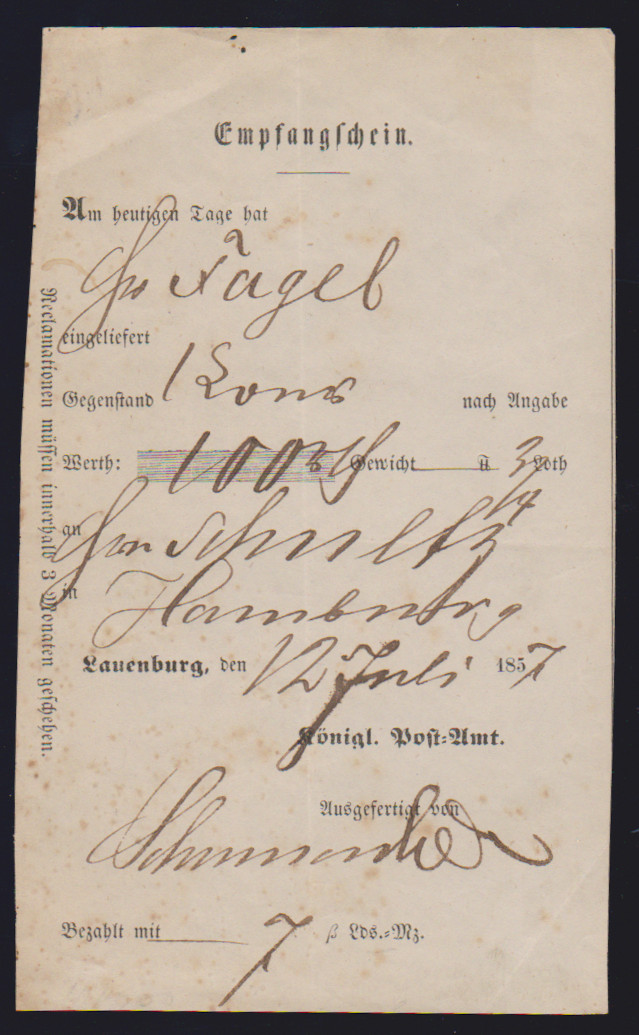 Empfangschein.
Am heutigen Tage hat
Hr Nagel
eingeliefert
Gegenstand 1 nach Angabe
Werth: 100 Gewicht ℔ 3/4 Loth
an Hrn Schultz
in Hamburg
Lauenburg, den 12 Juli 1857
Königl. Post-Amt.
Ausgefertigt von
Bezahlt mit 7 ß Lds.-Mz.
Reclamationen müssen innerhalb 3 Monaten geschehen.